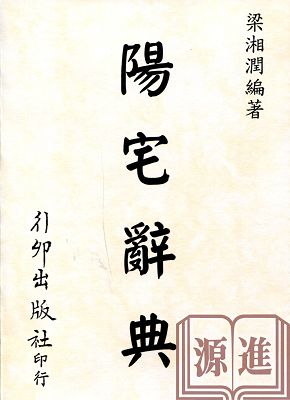 梁湘潤編著
陽宅辭典
行卯出版社印行
進源